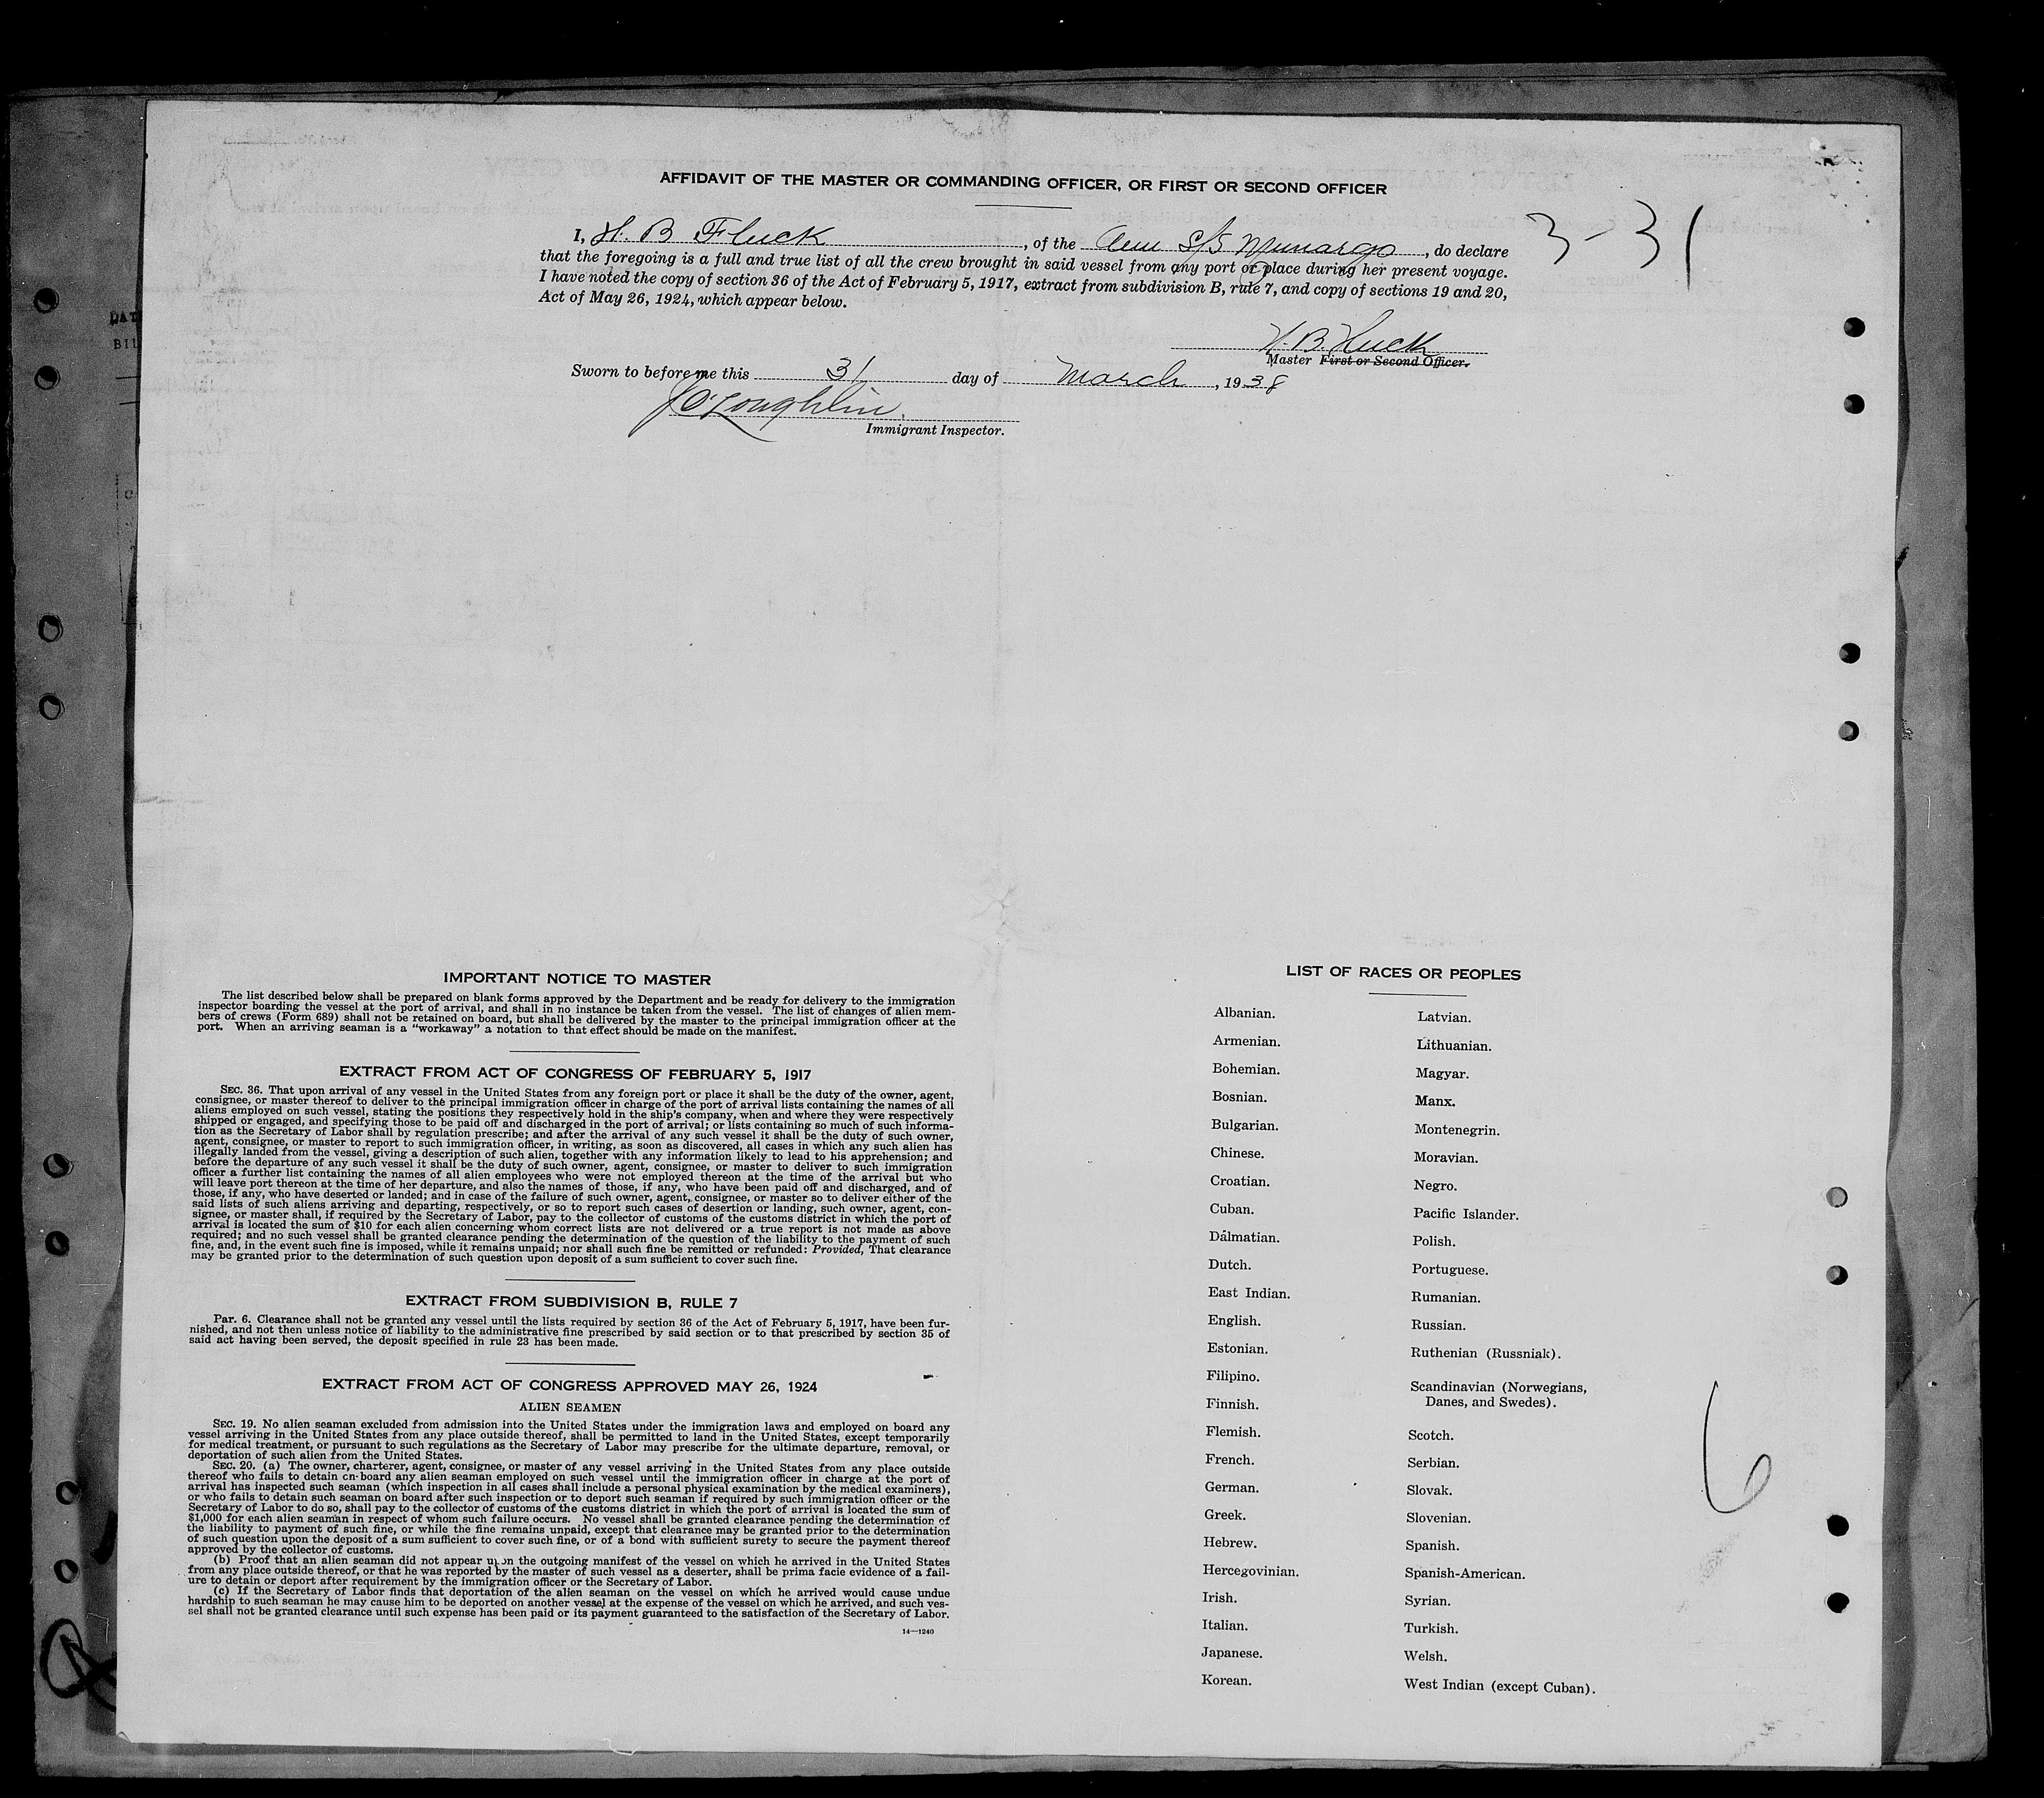 AFFIDAVIT OF THE MASTER OR COMMANDING OFFICER, OR FIRST OR SECOND OFFICER
I, H. B Fluck, of the Am S/S Munargo, do declare
3-31
that the foregoing is a full and true list of all the crew brought in said vessel from any port or place during her present voyage.
I have noted the copy of section 36 of the Act of February 5, 1917, extract from subdivision B, rule 7, and copy of sections 19 and 20,
Act of May 26, 1924, which appear below.
H. B. Fluck
Master First or Second Officer.
Sworn to before me this 31 day of March, 1938
J O'Loughlin.
Immigrant Inspector.
IMPORTANT NOTICE TO MASTER
The list described below shall be prepared on blank forms approved by the Department and be ready for delivery to the immigration
inspector boarding the vessel at the port of arrival, and shall in no instance be taken from the vessel. The list of changes of alien mem-
bers of crews (Form 689) shall not be retained on board, but shall be delivered by the master to the principal immigration officer at the
port. When an arriving seaman is a "workaway" a notation to that effect should be made on the manifest.
EXTRACT FROM ACT OF CONGRESS OF FEBRUARY 5, 1917
SEC. 36. That upon arrival of any vessel in the United States from any foreign port or place it shall be the duty of the owner, agent,
consignee, or master thereof to deliver to the principal immigration officer in charge of the port of arrival lists containing the names of all
aliens employed on such vessel, stating the positions they respectively hold in the ship's company, when and where they were respectively
shipped or engaged, and specifying those to be paid off and discharged in the port of arrival; or lists containing so much of such informa-
tion as the Secretary of Labor shall by regulation prescribe; and after the arrival of any such vessel it shall be the duty of such owner,
agent, consignee, or master to report to such immigration officer, in writing, as soon as discovered, all cases in which any such alien has
illegally landed from the vessel, giving a description of such alien, together with any information likely to lead to his apprehension; and
before the departure of any such vessel it shall be the duty of such owner, agent, consignee, or master to deliver to such immigration
officer a further list containing the names of all alien employees who were not employed thereon at the time of the arrival but who
will leave port thereon at the time of her departure, and also the names of those, if any, who have been paid off and discharged, and of
those, if any, who have deserted or landed; and in case of the failure of such owner, agent, consignee, or master so to deliver either of the
said lists of such aliens arriving and departing, respectively, or so to report such cases of desertion or landing, such owner, agent, con-
signee, or master shall, if required by the Secretary of Labor, pay to the collector of customs of the customs district in which the port of
arrival is located the sum of $10 for each alien concerning whom correct lists are not delivered or a true report is not made as above
required; and no such vessel shall be granted clearance pending the determination of the question of the liability to the payment of such
fine, and, in the event such fine is imposed, while it remains unpaid; nor shall such fine be remitted or refunded: Provided, That clearance
may be granted prior to the determination of such question upon deposit of a sum sufficient to cover such fine.
EXTRACT FROM SUBDIVISION B, RULE 7
Par. 6. Clearance shall not be granted any vessel until the lists required by section 36 of the Act of February 5, 1917, have been fur-
nished, and not then unless notice of liability to the administrative fine prescribed by said section or to that prescribed by section 35 of
said act having been served, the deposit specified in rule 23 has been made.
EXTRACT FROM ACT OF CONGRESS APPROVED MAY 26, 1924
ALIEN SEAMEN
SEC. 19. No alien seaman excluded from admission into the United States under the immigration laws and employed on board any
vessel arriving in the United States from any place outside thereof, shall be permitted to land in the United States, except temporarily
for medical treatment, or pursuant to such regulations as the Secretary of Labor may prescribe for the ultimate departure, removal, or
deportation of such alien from the United States.
SEC. 20. (a) The owner, charterer, agent, consignee, or master of any vessel arriving in the United States from any place outside
thereof who fails to detain on board any alien seaman employed on such vessel until the immigration officer in charge at the port of
arrival has inspected such seaman (which inspection in all cases shall include a personal physical examination by the medical examiners),
or who fails to detain such seaman on board after such inspection or to deport such seaman if required by such immigration officer or the
Secretary of Labor to do so, shall pay to the collector of customs of the customs district in which the port of arrival is located the sum of
$1,000 for each alien seaman in respect of whom such failure occurs. No vessel shall be granted clearance pending the determination of
the liability to payment of such fine, or while the fine remains unpaid, except that clearance may be granted prior to the determination
of such question upon the deposit of a sum sufficient to cover such fine, or of a bond with sufficient surety to secure the payment thereof
approved by the collector of customs.
(b) Proof that an alien seaman did not appear upon the outgoing manifest of the vessel on which he arrived in the United States
from any place outside thereof, or that he was reported by the master of such vessel as a deserter, shall be prima facie evidence of a fail-
ure to detain or deport after requirement by the immigration officer or the Secretary of Labor.
(c) If the Secretary of Labor finds that deportation of the alien seaman on the vessel on which he arrived would cause undue
hardship to such seaman he may cause him to be deported on another vessel at the expense of the vessel on which he arrived, and such ves-
sel shall not be granted clearance until such expense has been paid or its payment guaranteed to the satisfaction of the Secretary of Labor.
14—1240
LIST OF RACES OR PEOPLES
Albanian.
Armenian.
Bohemian.
Bosnian.
Bulgarian.
Chinese.
Croatian.
Cuban.
Dalmatian.
Dutch.
East Indian.
English.
Estonian.
Filipino.
Finnish.
Flemish.
French.
German.
Greek.
Hebrew.
Hercegovinian.
Irish.
Italian.
Japanese.
Korean.
Latvian.
Lithuanian.
Magyar.
Manx.
Montenegrin.
Moravian.
Negro.
Pacific Islander.
Polish.
Portuguese.
Rumanian.
Russian.
Ruthenian (Russniak).
Scandinavian (Norwegians,
Danes, and Swedes).
Scotch.
Serbian.
Slovak.
Slovenian.
Spanish.
Spanish-American.
Syrian.
Turkish.
Welsh.
West Indian (except Cuban).
6